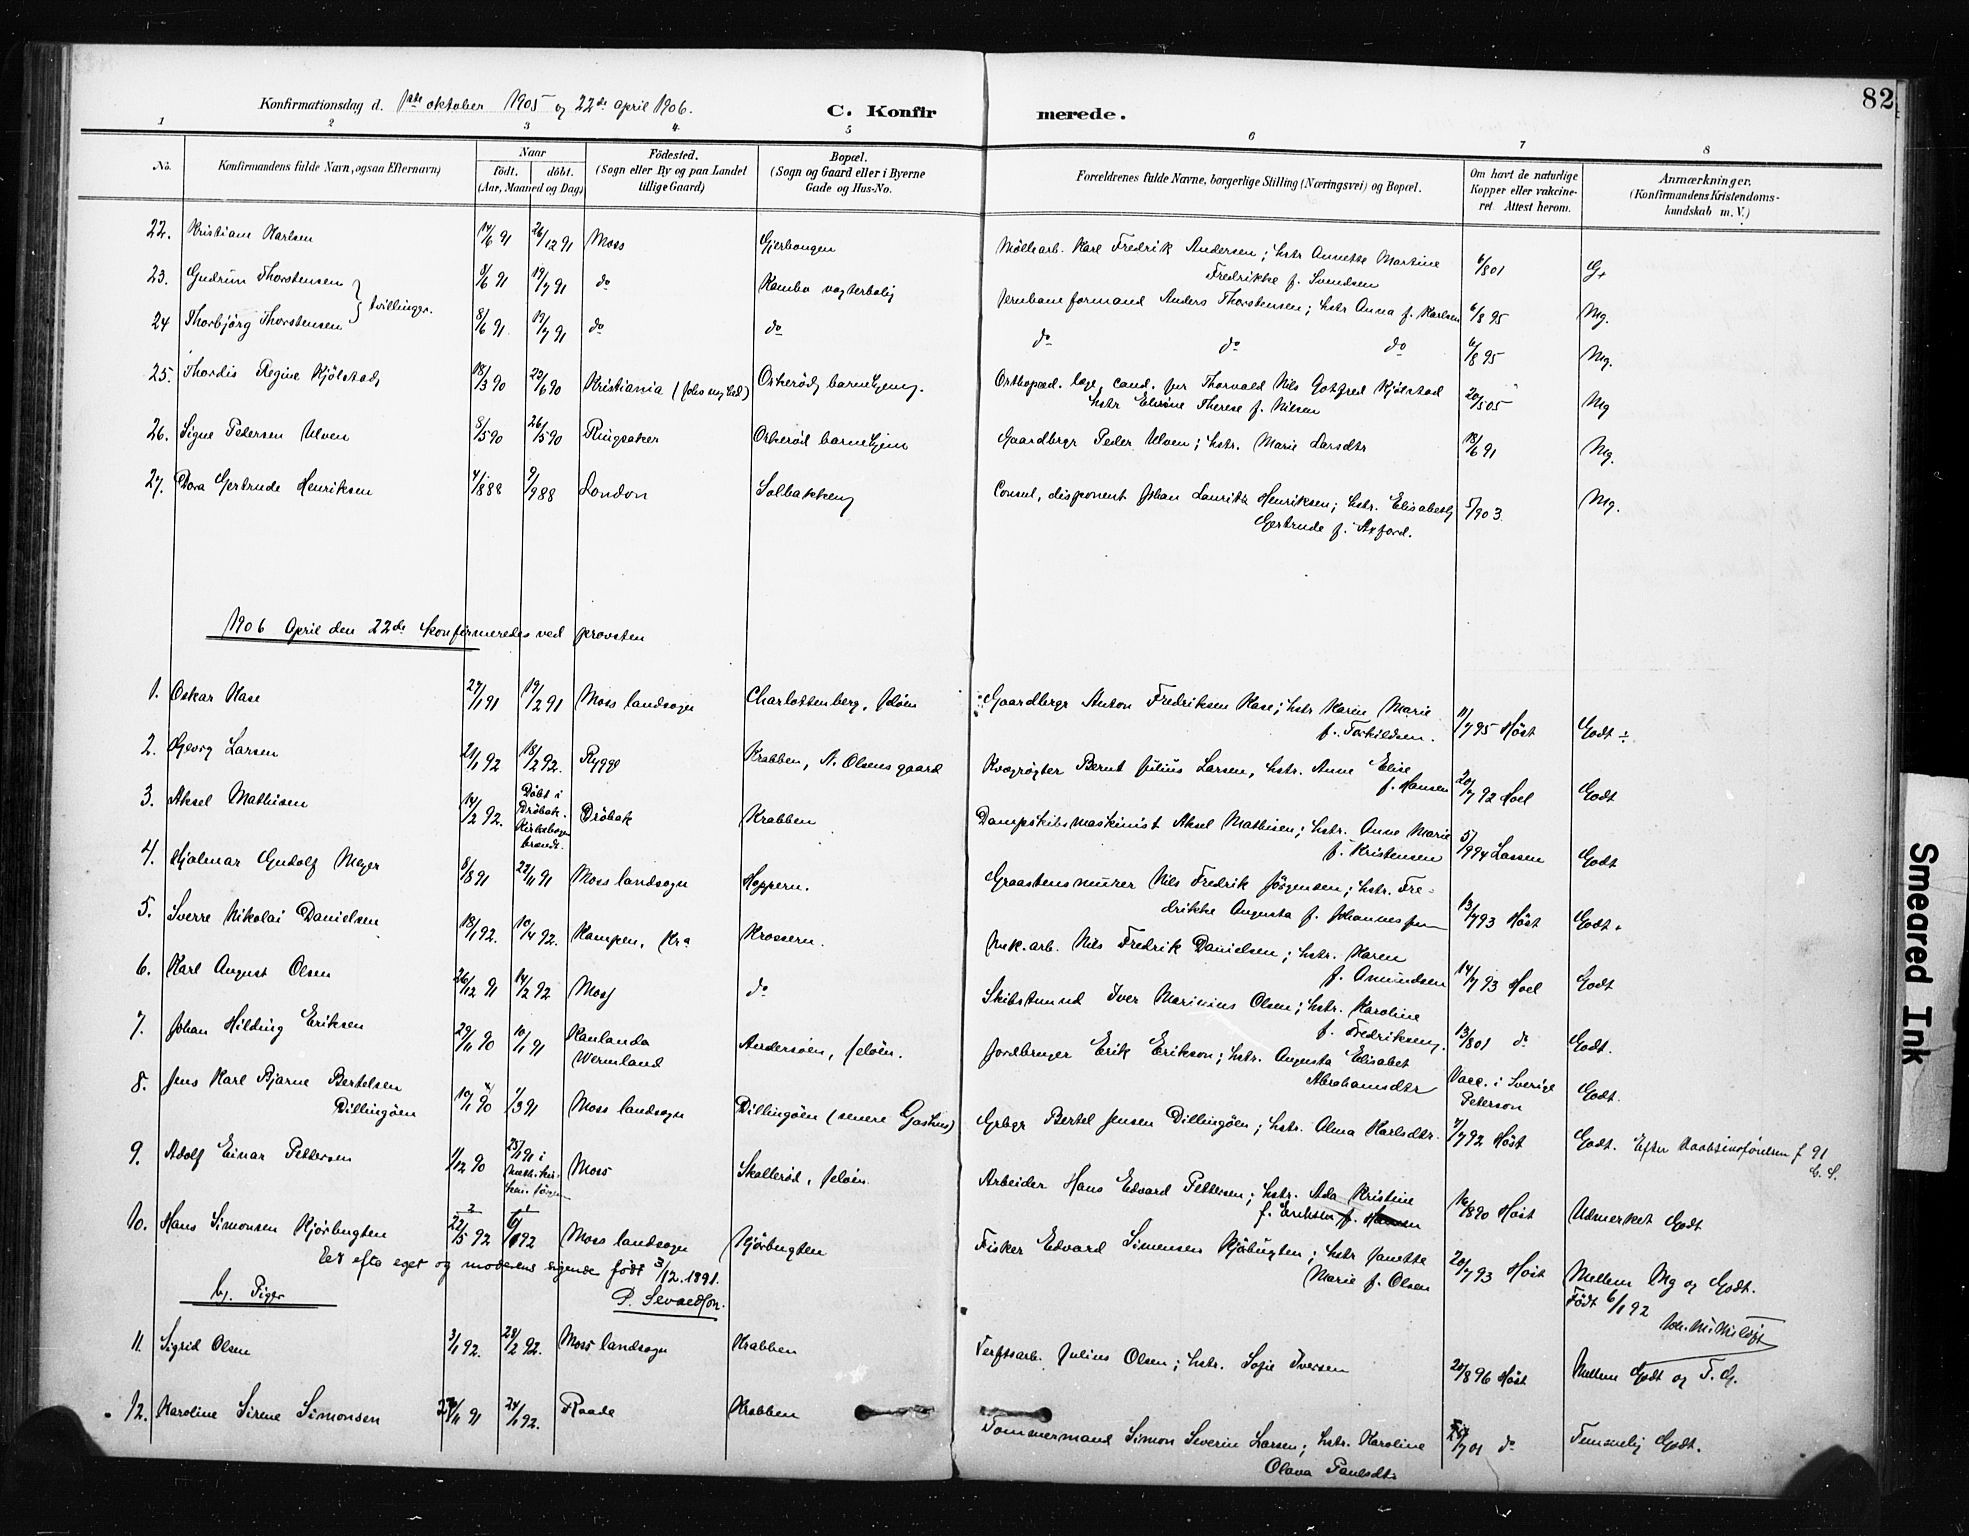 82
Konfirmationsdag d. 1ste oktober 1905 og 22de april 1906.
C. Konfirmerede.
1 2 3 4. 5 6 7 8
No.
Konfirmandens fulde Navn, ogsaa Efternavn)
Naar
født. døbt.
(Aar, Maaned og Dag)
Fødested.
(Sogn eller By og paa Landet
tillige Gaard)
Bopæl.
(Sogn og Gaard eller i Byerne
Gade og Hus-No.
Forældrenes fulde Navne, borgerlige Stilling (Næringsvei) og Bopæl.
Om havt de naturlige
Kopper eller vakcine-
ret Attest herom.
Anmærkninger.
(Konfirmandens Kristendoms-
kundskab m. V.)
22. Kristiane Karlsen 14/6 91 26/12 91 Moss Gjerbongen Møllearb. Karl Fredrik Andersen; hstr Annette Martine 6/8 01 G+
Fredrikke f. Svendsen
23. Gudrun Thorstensen 8/6 91 19/7 91 do Kambo vogterbolig Jernbaneformand Anders Thorstensen; hstr Anna f. Karlsen 6/8 95 Mg.
tvillinger.
24 Thorbjörg Thorstensen 8/6 91 19/7 91 do do do do do 6/8 95 Mg.
25. Thordis Regine Kjölstad 18/3 90 22/6 90 Kristiania Orkerød barnehjem. Orthopæd. læge, cand. Thorvald Nils Gotfred Kjölstad 20/5 05 Mg
hstr Elvine Therese f. Nilsen
26. Signe Petersen Ulven 8/5 90 26/5 90 Ringsaker Orkerød barnehjem Gaardbrgr Peder Ulven; hstr. Marie Larsdtr 18/6 91 Mg.
27. Dora Gertrude Henriksen 4/8 88 9/9 88 London Solbakken Consul, disponent Johan Lauritz Henriksen; hstr. Elisabeth 5/9 03 Mg.
Gertrude f. Axford.
1906 April den 22de konfirmeredes ved provsten
1. Oskar Kase 27/1 91 19/2 91 Moss landsogn Charlottenberg, Jeløen Gaardbrgr Anton Fredriksen Kase; hstr Karin Marie
f. Torkildsen. 11/7 95 Høst Godt ÷
2. Georg Larsen 21/1 92 18/2 92. Rygge Krabben, A. Olsens gaard Kvægrøgter Bernt Julius Larsen, hstr. Anne Elise
f. Hansen 20/7 92 Hoel Godt
3. Aksel Mathisen 14/2 92. Døbt i
Drøbak.
Kirkebogen
brændt. Drøbak Krabben Dampskibsmaskinist Aksel Mathisen; hstr. Anne Marie
f. Kristensen 5/9 94 Lassen Godt
4. Hjalmar Gudolf Meyer 8/8 91 22/11 91 Moss landsogn Hoppern. Graastensmurer Nils Fredrik Jørgensen; hstr. Fre-
drikke Augusta f. Johannessen 13/7 93 Høst Godt+
5. Sverre Nikolai Danielsen 18/1 92. 10/4 92. Kampen, Kra Krossern. Nils Fredrik Danielsen; hstr. Karen
f. Amundsen 14/7 93 Hoel Godt
6. Karl August Olsen 26/12 91 14/2 92 Moss do Skibstømmd Iver Marinius Olsen; hstr. Karoline
f. Fredriksen. 13/8 01 do Godt.
7. Johan Hilding Eriksen 29/11 90 10/1 91 Kanlanda
Wermland Andersøen, Jeløen. Jordbruger Erik Erikson; hstr. Augusta Elisabet
Abrahamsdtr Vacc. i Sverige
Peterson Godt.
8. Jens Karl Bjarne Bertelsen
Dillingøen 10/1 90 1/3 91 Moss landsogn Dillingøen (senere Gashus) Grbgr Bertel Jensen Dillingøen; hstr. Olma Karlsdtr. 7/7 92 Høst Godt. Efter Daabsindførelsen f 91
9. Adolf Einar Pettersen 1/12 90 25/1 91 i Moss Skallerød, Jeløen. Arbeider Hans Edvard Pettersen; hstr. Ada Kristine
f. Eriksen f. Hansen 16/8 90 Høst Udmerket Godt.
10. Hans Simonsen Kjørbugten 22/5 92 6/1 92 Moss landsogn Kjørbugten Fisker Edvard Simensen Kjøbugten; hstr Janette
Marie f. Olsen 20/7 93 Høst Mellem Mg og Godt.
Født 6/1 92
Er efter eget og moderens sigende født 3/12. 1891.
P. Sevaldson.
b. Piger
11. Sigrid Olsen 3/1 92. 28/2 92. Moss landsogn Krabben Verftsarb. Julius Olsen; hstr. Sofie Iversen 20/8 96 Høst Mellem Godt og T. G.
12. Karoline Sirene Simonsen 27/11 91 24/1 92. Raade Krabben Tømmermand Simon Severin Larsen; hstr. Karoline
Olava Paulsdtr 7 01 do Temmelig Godt.
Smeared Ink